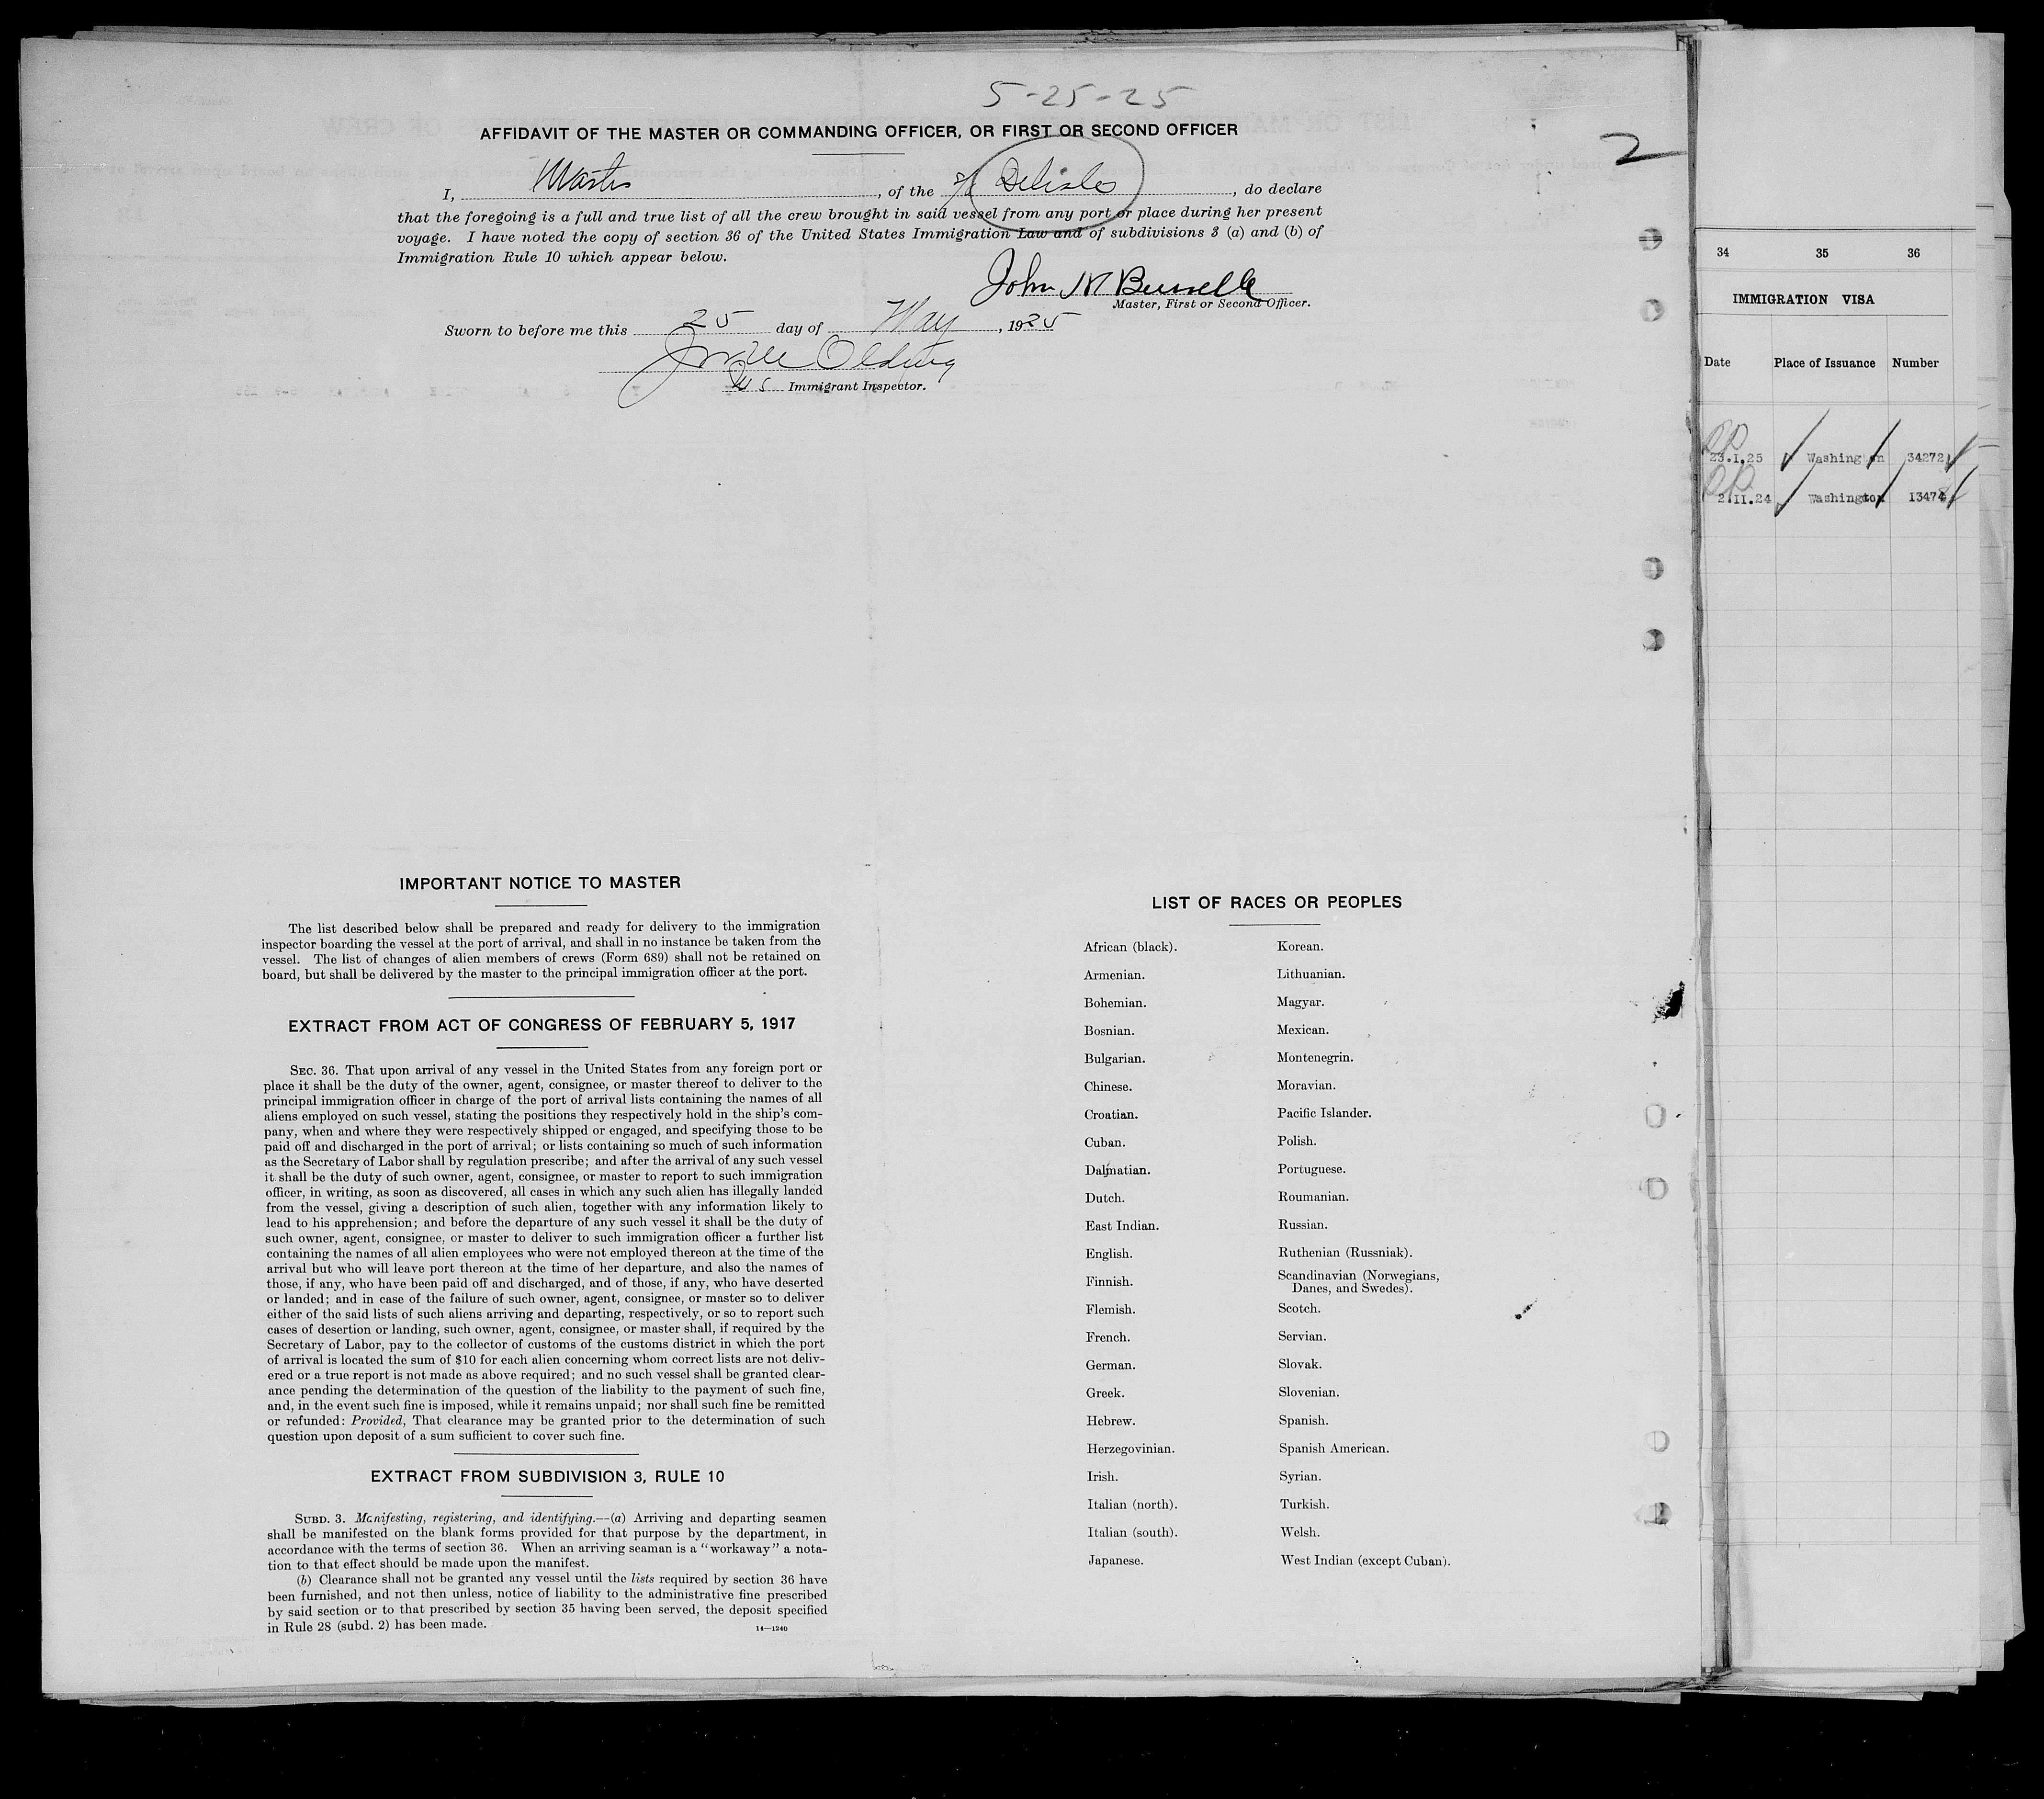 5-25-25
AFFIDAVIT OF THE MASTER OR COMMANDING OFFICER, OR FIRST OR SECOND OFFICER
2
I, Master, of the Delisle, do declare
that the foregoing is a full and true list of all the crew brought in said vessel from any port or place during her present
voyage. I have noted the copy of section 36 of the United States Immigration Law and of subdivisions 3 (a) and (b) of
Immigration Rule 10 which appear below.
John M
Master, First or Second Officer.
Sworn to before me this 25 day of May, 1925
U S Immigrant Inspector.
IMPORTANT NOTICE TO MASTER
The list described below shall be prepared and ready for delivery to the immigration
inspector boarding the vessel at the port of arrival, and shall in no instance be taken from the
vessel. The list of changes of alien members of crews (Form 689) shall not be retained on
board, but shall be delivered by the master to the principal immigration officer at the port.
EXTRACT FROM ACT OF CONGRESS OF FEBRUARY 5, 1917
SEC. 36. That upon arrival of any vessel in the United States from any foreign port or
place it shall be the duty of the owner, agent, consignee, or master thereof to deliver to the
principal immigration officer in charge of the port of arrival lists containing the names of all
aliens employed on such vessel, stating the positions they respectively hold in the ship's com-
pany, when and where they were respectively shipped or engaged, and specifying those to be
paid off and discharged in the port of arrival; or lists containing so much of such information
as the Secretary of Labor shall by regulation prescribe; and after the arrival of any such vessel
it shall be the duty of such owner, agent, consignee, or master to report to such immigration
officer, in writing, as soon as discovered, all cases in which any such alien has illegally landed
from the vessel, giving a description of such alien, together with any information likely to
lead to his apprehension; and before the departure of any such vessel it shall be the duty of
such owner, agent, consignee, or master to deliver to such immigration officer a further list
containing the names of all alien employees who were not employed thereon at the time of the
arrival but who will leave port thereon at the time of her departure, and also the names of
those, if any, who have been paid off and discharged, and of those, if any, who have deserted
or landed; and in case of the failure of such owner, agent, consignee, or master so to deliver
either of the said lists of such aliens arriving and departing, respectively, or so to report such
cases of desertion or landing, such owner, agent, consignee, or master shall, if required by the
Secretary of Labor, pay to the collector of customs of the customs district in which the port
of arrival is located the sum of $10 for each alien concerning whom correct lists are not deliv-
ered or a true report is not made as above required; and no such vessel shall be granted clear-
ance pending the determination of the question of the liability to the payment of such fine,
and, in the event such fine is imposed, while it remains unpaid; nor shall such fine be remitted
or refunded: Provided, That clearance may be granted prior to the determination of such
question upon deposit of a sum sufficient to cover such fine.
EXTRACT FROM SUBDIVISION 3, RULE 10
SUBD. 3. Manifesting, registering, and identifying.—(a) Arriving and departing seamen
shall be manifested on the blank forms provided for that purpose by the department, in
accordance with the terms of section 36. When an arriving seaman is a "workaway" a nota-
tion to that effect should be made upon the manifest.
(b) Clearance shall not be granted any vessel until the lists required by section 36 have
been furnished, and not then unless, notice of liability to the administrative fine prescribed
by said section or to that prescribed by section 35 having been served, the deposit specified
in Rule 28 (subd. 2) has been made.
14—1240
LIST OF RACES OR PEOPLES
African (black). Korean.
Armenian. Lithuanian.
Bohemian. Magyar.
Bosnian. Mexican.
Bulgarian. Montenegrin.
Chinese. Moravian.
Croatian. Pacific Islander.
Cuban. Polish.
Dalmatian. Portuguese.
Dutch. Roumanian.
East Indian. Russian.
English. Ruthenian (Russniak).
Finnish. Scandinavian (Norwegians,
Danes, and Swedes).
Flemish. Scotch.
French. Servian.
German. Slovak.
Greek. Slovenian.
Hebrew. Spanish.
Herzegovinian. Spanish American.
Irish. Syrian.
Italian (north). Turkish.
Italian (south). Welsh.
Japanese. West Indian (except Cuban).
34 35 36
IMMIGRATION VISA
Date Place of Issuance Number
23.I.25 Washington 34272
2.II.24 Washington 13474